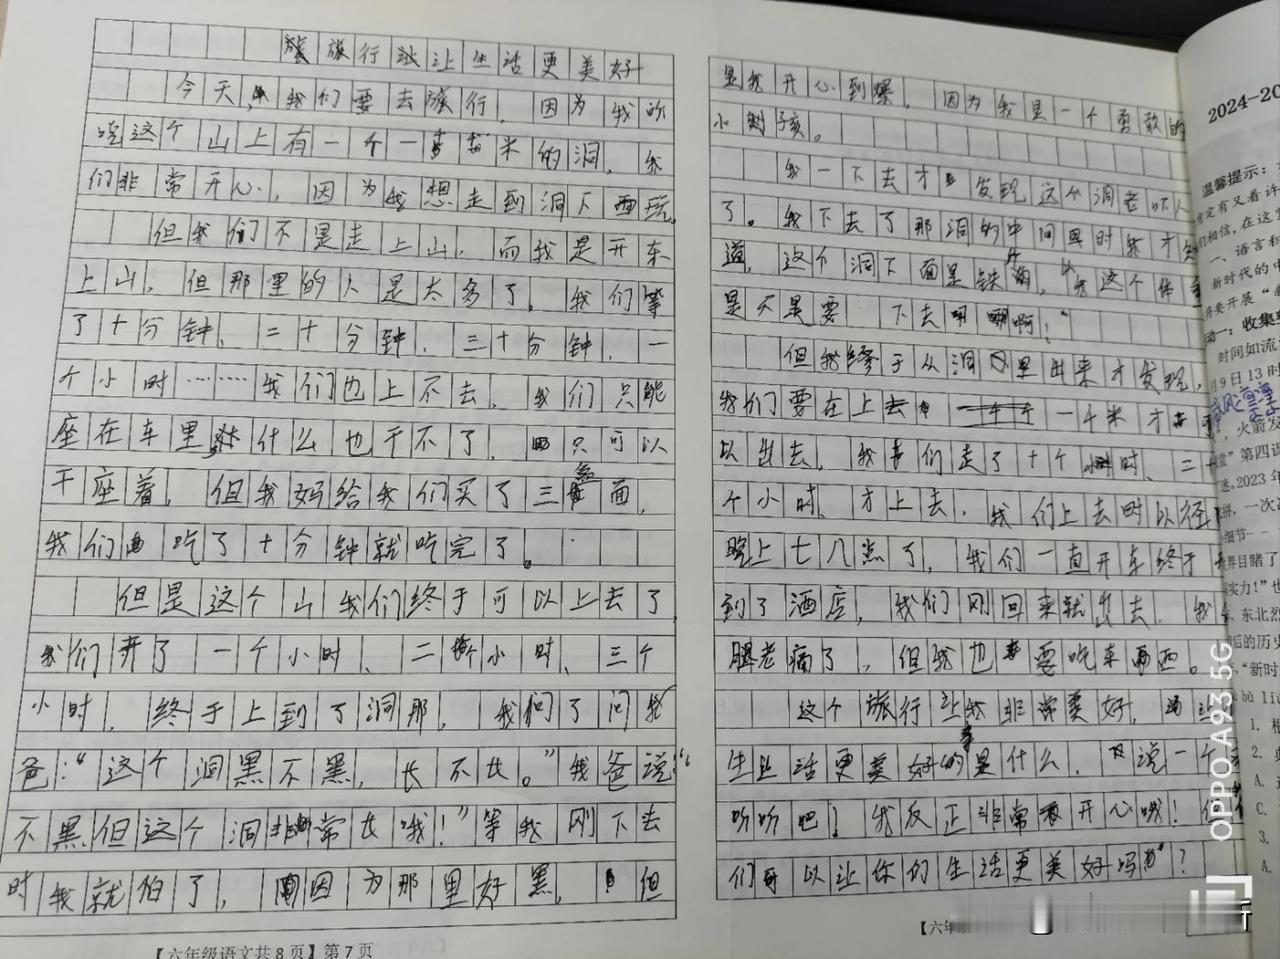 旅行让生活更美好
今天,我们要去旅行,因为我听
说这个山上有一个一百米的洞,我
们非常开心,因为我想走到洞下面玩。
但我们不是走上山,而我是开车
上山,但那里的人是太多了,我们等
了十分钟、二十分钟、三十分钟、一
个小时……我们也上不去,我们只能
座在车里,什么也干不了,只可以
干座着,但我妈给我们买了三盒面,
我们吃了十分钟就吃完了。
但是这个山我们终于可以上去了
我们开了一个小时、二个小时、三个
小时,终于上到了洞那,我们问了问我
爸:“这个洞黑不黑,长不长。”我爸说:“
不黑,但这个洞非常长哦!”等我刚下去
时我就怕了,因为那里好黑,但
【六年级语文共8页】第7页
是我开心到爆,因为我是一个勇敢的
小孩。
我一下去才发现这个洞老吓人
了。我下去了那洞的中间时我才知
道,这个洞下面是铁的,我这个体重
是不是要下去啊!
但我终于从洞里出来才发现,
我们要在上去一千米才可
以出去,我们走了十个小时、二十
个小时,才上去,我们上去时以径
晚上七八点了,我们一直开车终于
到了酒店,我们刚回来就出去,我
腿老痛了,但我也要吃车西。
这个旅行让我非常美好,让
生活更美好的事是什么,说一个
听听吧!我反正非常开心哦!你
们可以让你的生活更美好吗?
【六年
2024-20
温馨提示:
肯定有又着许
们相信,在这
一、语言积
新时代的中
将要开展“
动一:收集
时间如流
月9日13时
,火箭发
堂”第四课
送。2023年
拼,一次
细节——
界目睹了
实力!”也
,东北烈
后的历史
,“新时
bù liú
1.
2.
A.
C.
3.
A.
OPPO A93 5G